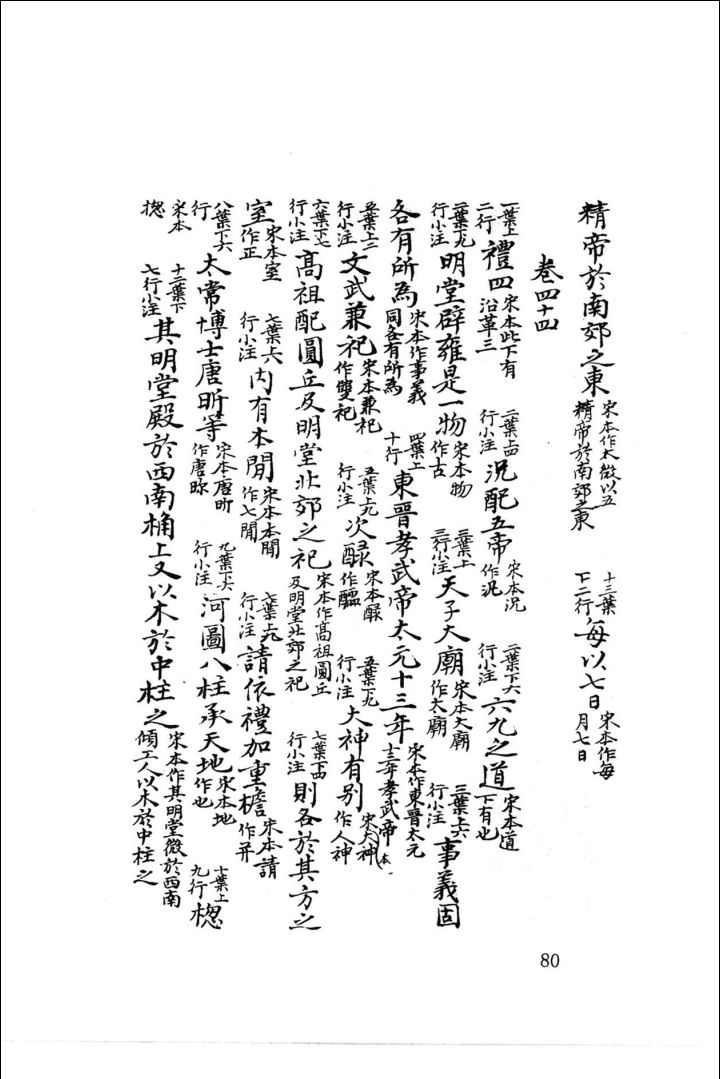 精帝於南郊之東 宋本作太微以五精帝於南郊之東 十三葉下二行 每以七日 宋本作每月七日
卷四十四
一葉上二行 禮四 宋本此下有沿革三 二葉上四行小注 況配五帝 宋本況作泥 二葉下六行小注 六九之道 宋本道下有也
二葉下九行小注 明堂辟雍是一物 宋本物作古 三葉上三行小注 天子大廟 宋本大廟作太廟 三葉上六行小注 事義固
各有所為 宋本作事義同各有所為 四葉上十行 東晉孝武帝太元十三年 宋本作東晉太元十三年孝武帝
五葉上二行小注 文武兼祀 宋本兼祀作雙祀 五葉上九行小注 次醁 宋本醁作醞 五葉下九行小注 大神有別 宋本大神作人神
六葉下七行小注 高祖配圓丘及明堂北郊之祀 宋本作高祖圓丘及明堂北郊之祀 七葉下四行小注 則各於其方之
室 宋本室作正 七葉上六行小注 內有本閒 宋本本閒作七閒 七葉上九行小注 請依禮加重檐 宋本請作并
八葉下六行 太常博士唐昕等 宋本唐昕作唐眎 九葉下六行小注 河圖八柱承天地 宋本地作也 十葉上九行 楤
宋本楤 十二葉下七行小注 其明堂殿於西南桷上又以木於中柱之 宋本作其明堂微於西南傾工人以木於中柱之
80